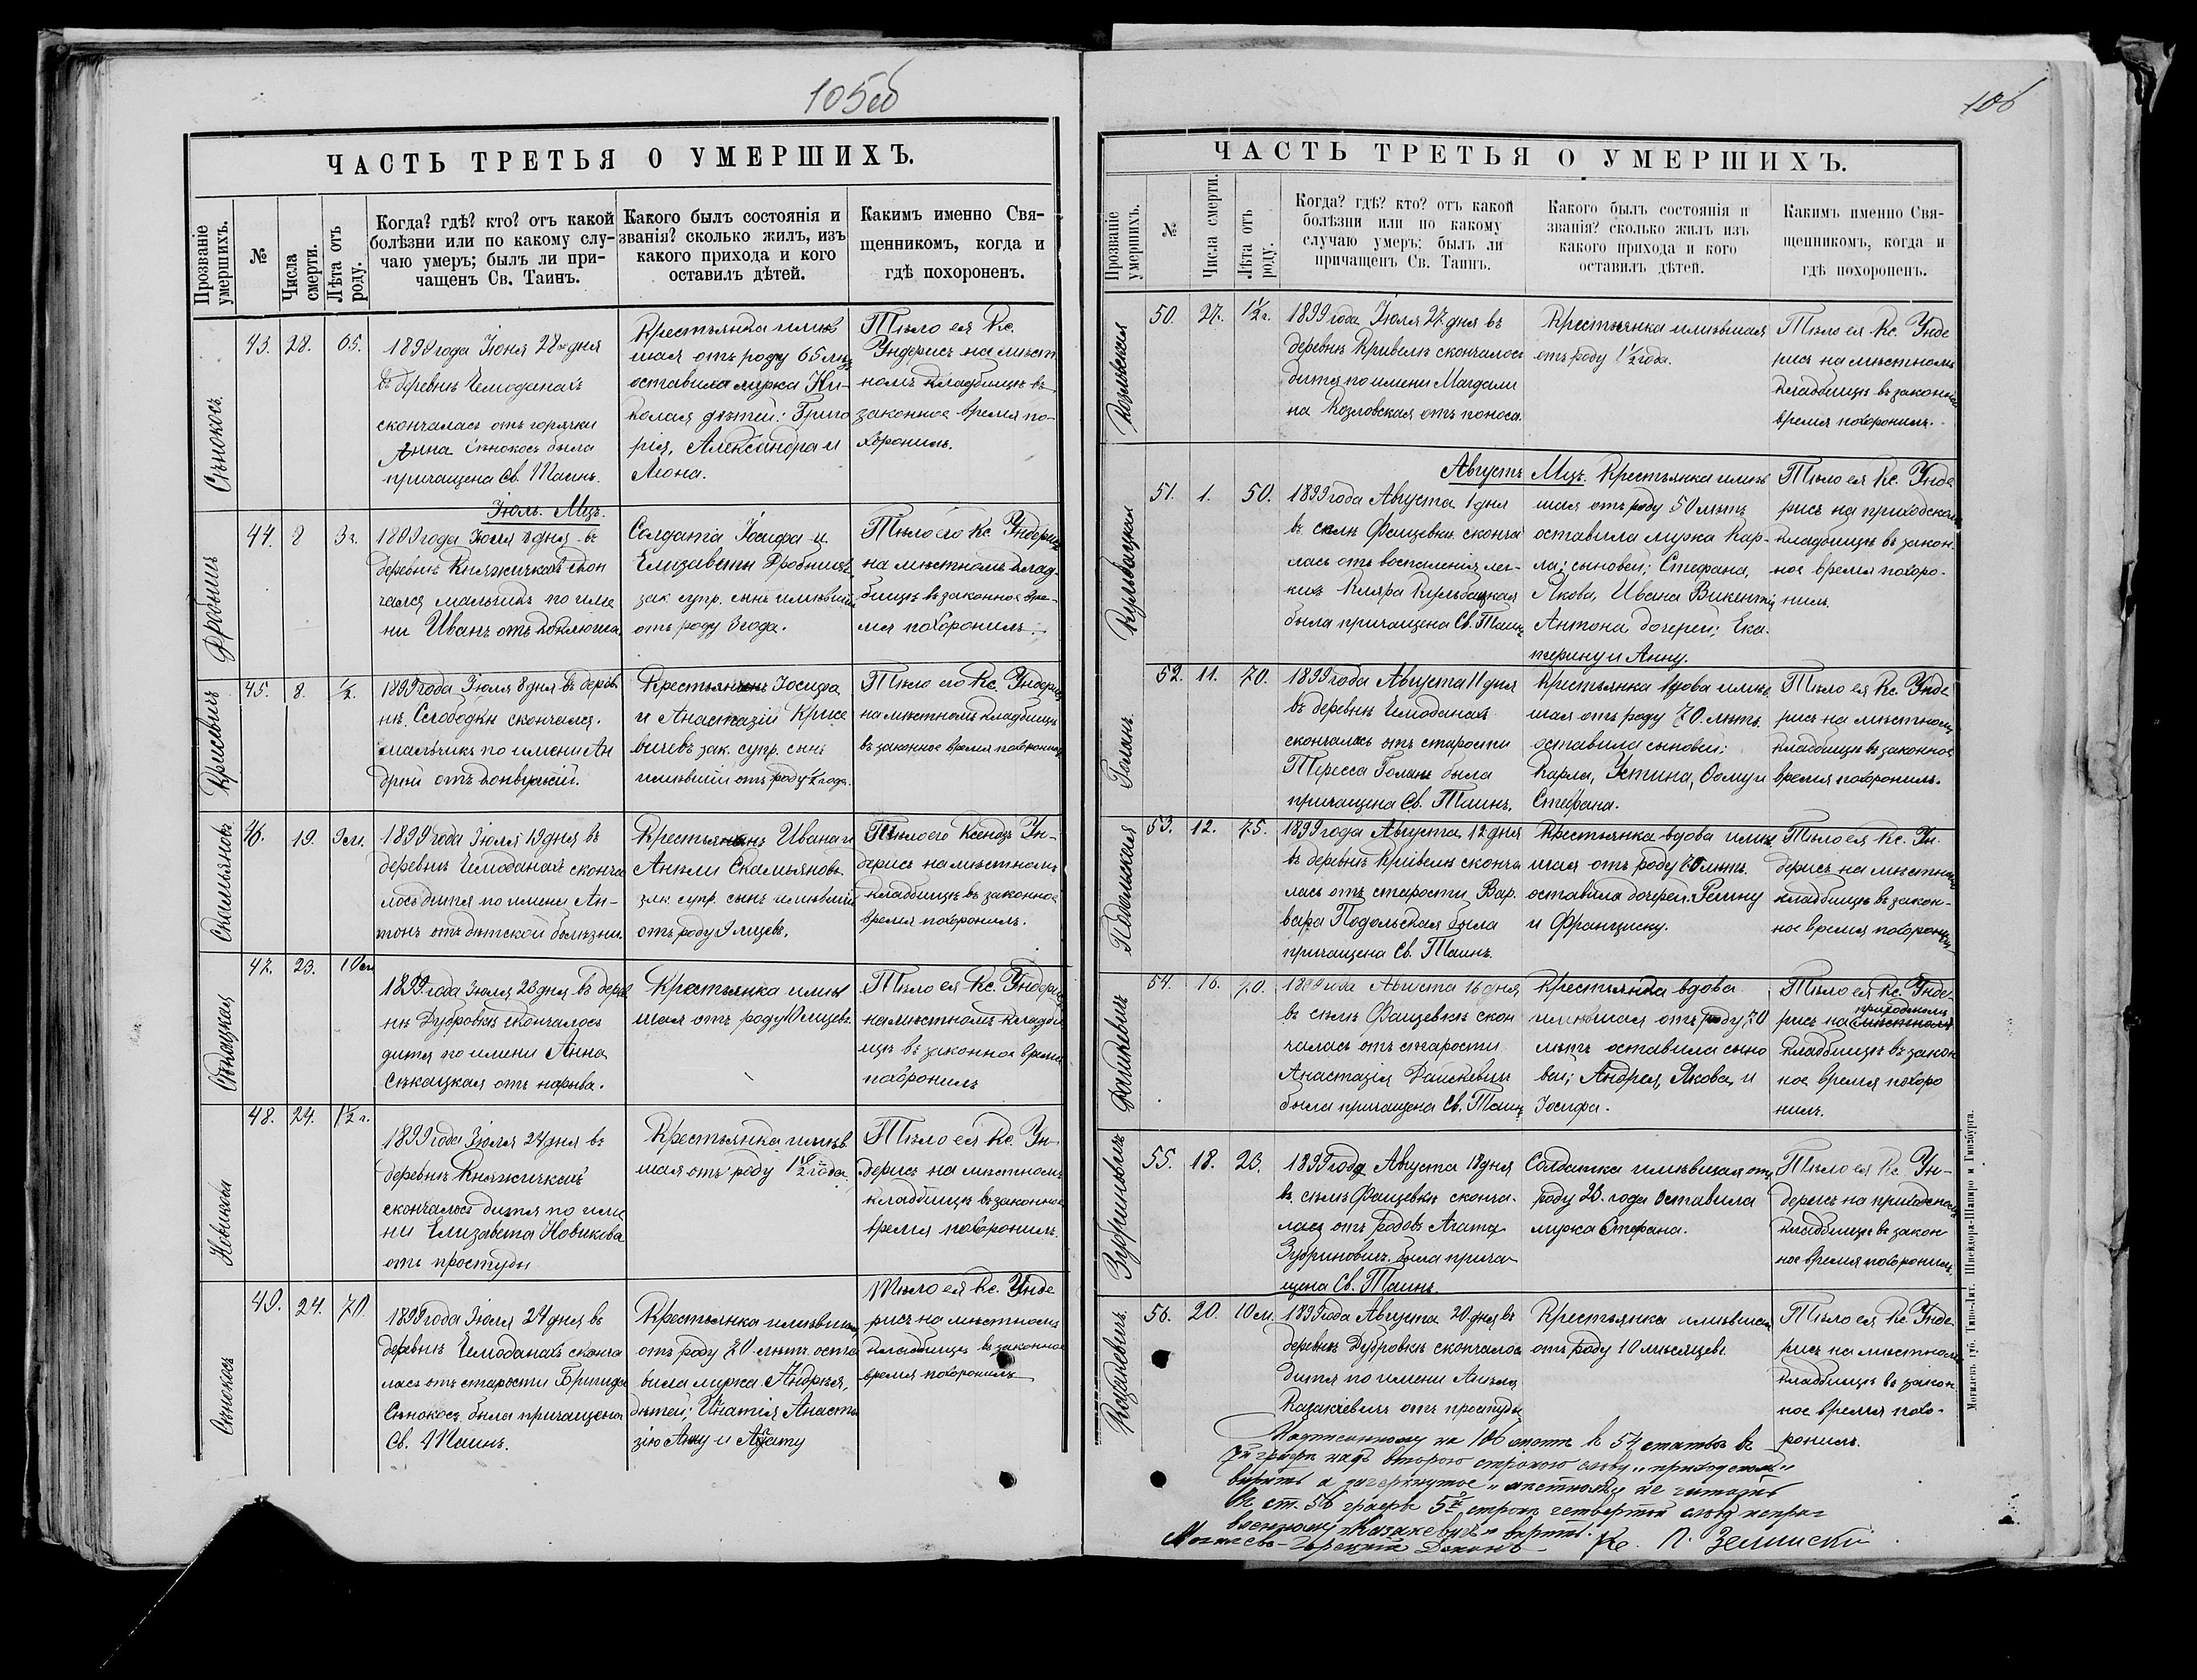 105об
ЧАСТЬ ТРЕТЬЯ О УМЕРШИХЪ.
Прозваніе умершихъ.
№
Числа смерти.
Лѣта отъ роду.
Когда? гдѣ? кто? отъ какой
болѣзни или по какому слу-
чаю умеръ; былъ ли при-
чащенъ Св. Таинъ.
Какого былъ состоянія и
званія? сколько жилъ, изъ
какого прихода и кого
оставилъ дѣтей.
Какимъ именно Свя-
щенникомъ, когда и
гдѣ похороненъ.
Сѣнокосъ
43. 28. 65.
1899 года Іюня 28 дня
въ деревнѣ Чемоданахъ
скончалась отъ горячки
Анна Сѣнокосъ была
причащена Св. Таинъ.
Крестьянка имѣв
шая отъ роду 65 лѣтъ
оставила мужа Ни-
колая дѣтей: Григо
рія, Александра и
Леона.
Тѣло ея Кс.
Ундерисъ на мѣст
номъ кладбищѣ въ
законное время по-
хоронилъ.
Іюль. Мцъ.
Дробышъ
44. 8 3г.
1899 года Іюля 8 дня въ
деревнѣ Княжичкахъ скон
чался мальчикъ по име
ни Иванъ отъ коклюша.
Солдата Іосифа и
Елизаветы Дробышъ
зак. супр. сынъ имѣвшій
отъ роду 3 года.
Тѣло его Кс. Ундерисъ
на мѣстномъ клад-
бищѣ въ законное вре-
мя похоронилъ.
Крисевичъ
45. 8. ½.
1899 года Іюля 8 дня въ дерев
нѣ Слободкѣ скончался
мальчикъ по имени Ан
дрей отъ конвульсій.
Крестьянъ Іосифа
и Анастазіи Крисе
вичевъ зак. супр. сынъ
имѣвшій отъ роду ½ года.
Тѣло его Кс. Ундерисъ
на мѣстномъ кладбищѣ
въ законное время похоронилъ.
Скамьяновъ
46. 19. 9 м.
1899 года Іюля 19 дня въ
деревнѣ Чемоданахъ сконча
лось дитя по имени Ан-
тонъ отъ дѣтской болѣзни.
Крестьянъ Ивана и
Анѣли Скамьяновъ
зак. супр. сынъ имѣвшій
отъ роду 9 мцевъ.
Тѣло его Ксендзъ Ун-
дерисъ на мѣстномъ
кладбищѣ въ законное
время похоронилъ.
Сѣкацкая
47. 23. 10 м
1899 года Іюля 23 дня въ дерев
нѣ Дубровкѣ скончалось
дитя по имени Анна
Сѣкацкая отъ нарыва.
Крестьянка имѣв
шая отъ роду 10 мцевъ.
Тѣло ея Кс. Ундерисъ
на мѣстномъ кладби
щѣ въ законное время
похоронилъ
Новикова
48. 24. 1½ г.
1899 года Іюля 24 дня въ
деревнѣ Княжичкахъ
скончалось дитя по име
ни Елизавета Новикова
отъ простуды
Крестьянка имѣв
шая отъ роду 1½ года.
Тѣло ея Кс. Ун-
дерисъ на мѣстномъ
кладбищѣ въ законное
время похоронилъ.
Сѣнокосъ
49. 24. 70.
1899 года Іюля 24 дня въ
деревнѣ Чемоданахъ сконча
лась отъ старости Бригида
Сѣнокосъ была причащена
Св. Таинъ.
Крестьянка имѣвшая
отъ роду 70 лѣтъ оста
вила мужа Андрея,
дѣтей; Игнатія Анаста
зію Анну и Агату
Тѣло ея Кс. Унде
рисъ на мѣстномъ
кладбищѣ въ законное
время похоронилъ
106
ЧАСТЬ ТРЕТЬЯ О УМЕРШИХЪ.
Прозваніе умершихъ.
№
Числа смерти.
Лѣта отъ роду.
Когда? гдѣ? кто? отъ какой
болѣзни или по какому
случаю умеръ; былъ ли
причащенъ Св. Таинъ.
Какого былъ состоянія и
званія? сколько жилъ изъ
какого прихода и кого
оставилъ дѣтей.
Какимъ именно Свя-
щенникомъ, когда и
гдѣ похороненъ.
Козловская
50. 27. 1½ г.
1899 года Іюля 27 дня въ
деревнѣ Кривелѣ скончалось
дитя по имени Магдали
на Козловская отъ поноса.
Крестьянка имѣвшая
отъ роду 1½ года.
Тѣло ея Кс. Унде
рисъ на мѣстномъ
кладбищѣ въ законное
время похоронилъ.
Августъ Мцъ.
Кульбацкая
51. 1. 50.
1899 года Августа 1 дня
въ селѣ Фащевкѣ сконча
лась отъ воспаленія лег-
кихъ Кляра Кульбацкая
была причащена Св. Таинъ
Крестьянка имѣв
шая отъ роду 50 лѣтъ
оставила мужа Кар-
ла; сыновей; Стефана,
Якова, Ивана Викентія
Антона, дочерей; Ека-
терину и Анну.
Тѣло ея Кс. Унде
рисъ на приходскомъ
кладбищѣ въ закон-
ное время похоро-
нилъ.
Голанъ
52. 11. 70.
1899 года Августа 11 дня
въ деревнѣ Чемоданахъ
скончалась отъ старости
Тересса Голанъ была
причащена Св. Таинъ.
Крестьянка вдова имѣв
шая отъ роду 70 лѣтъ.
оставила сыновей:
Карла, Устина, Фому и
Стефана.
Тѣло ея Кс. Унде
рисъ на мѣстномъ
кладбищѣ въ законное
время похоронилъ.
Подольская
53. 12. 75.
1899 года Августа 12 дня
въ деревнѣ Кривелѣ сконча
лась отъ старости Вар-
вара Подольская была
причащена Св. Таинъ.
Крестьянка вдова имѣв
шая отъ роду 70 лѣтъ.
оставила дочерей: Регину
и Франциску.
Тѣло ея Кс. Ун-
дерисъ на мѣстномъ
кладбищѣ въ закон-
ное время похоронилъ
Дашкевичъ
54. 16. 70.
1899 года Августа 16 дня
въ селѣ Фащевкѣ скон
чалась отъ старости
Анастазія Дашкевичъ
была причащена Св. Таинъ
Крестьянка вдова
имѣвшая отъ роду 70
лѣтъ оставила сыно
вей; Андрея, Якова, и
Іосифа.
Тѣло ея Кс. Унде-
приходскомъ
рисъ на мѣстномъ
кладбищѣ въ закон
ное время похоро
нилъ.
Зубриновичъ
55. 18. 23.
1899 года Августа 18 дня
въ селѣ Фащевкѣ сконча-
лась отъ родовъ Агата
Зубриновичъ. была прича
щена Св. Таинъ
Солдатка имѣвшая отъ
роду 23. года оставила
мужа Стефана.
Тѣло ея Кс. Ун-
дерисъ на приходскомъ
кладбищѣ въ закон
ное время похоронилъ.
Казакевичъ
56. 20. 10 м.
1899 года Августа 20 дня въ
деревнѣ Дубровкѣ скончалось
дитя по имени Анѣля
Казакевичъ отъ простуды
Крестьянка имѣвшая
отъ роду 10 мѣсяцевъ.
Тѣло ея Кс. Унде-
рисъ на мѣстномъ
кладбищѣ въ закон
ное время похо-
ронилъ.
Надписанному на 106 листѣ въ 54 статьѣ въ
графѣ надъ второю строкою слову „приходскомъ"
вѣрить а зачеркнутое „мѣстному" не читать
Въ ст. 56 графы 5й строкѣ четвертой слову исправ
вленному „Казакевичъ" вѣрить.
Деканъ Кс. П. Зелински
Могилевъ губ. Типо-Лит. Шнейдора-Шапиро и Гинзбурга.